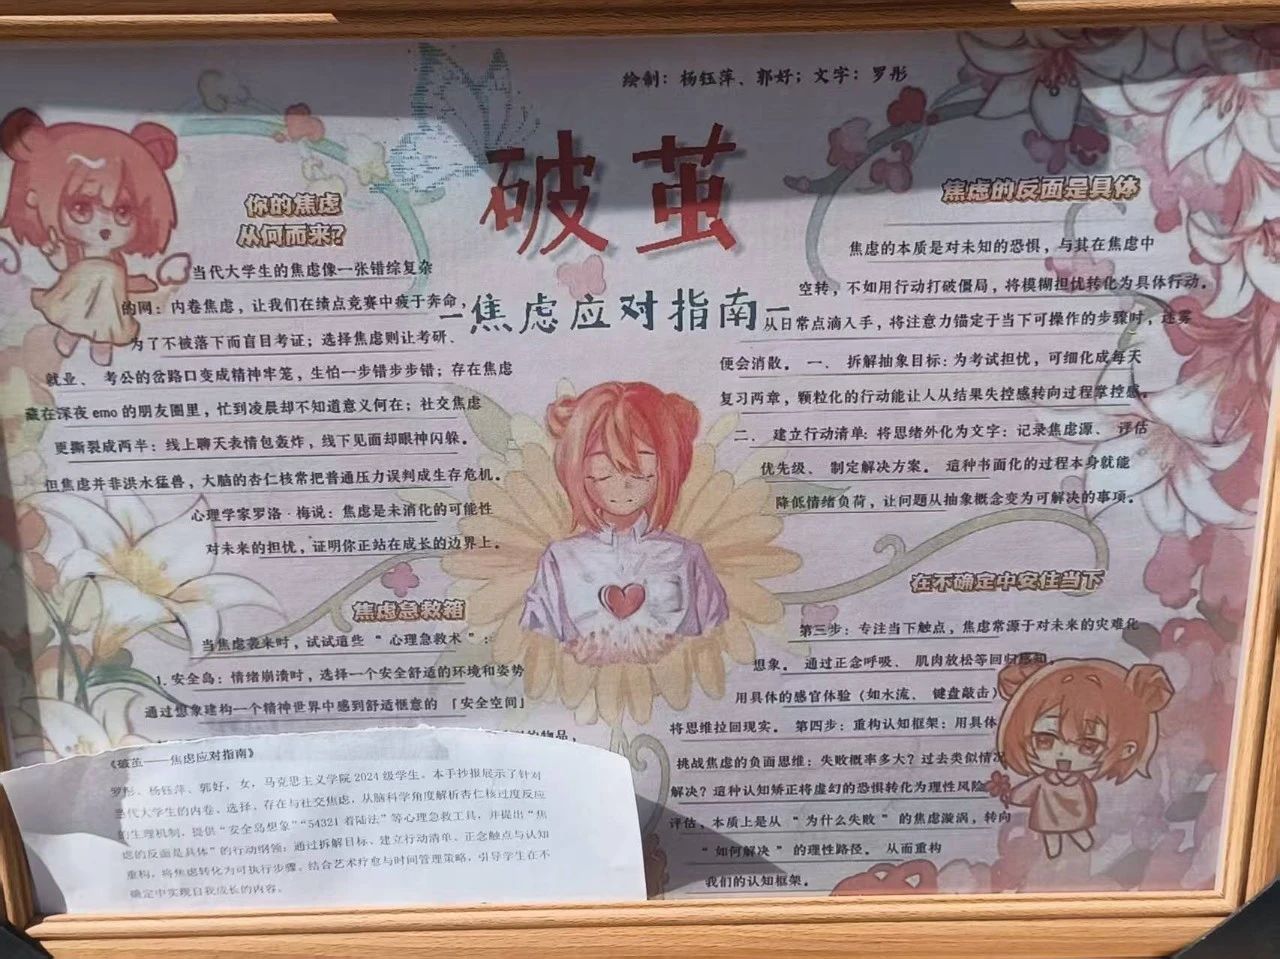 绘制：杨钰萍、郭好；文字：罗彤
破茧
-焦虑应对指南-
你的焦虑
从何而来？
当代大学生的焦虑像一张错综复杂
的网：内卷焦虑，让我们在绩点竞赛中疲于奔命，
为了不被落下而盲目考证；选择焦虑则让考研、
就业、考公的岔路口变成精神牢笼，生怕一步错步步错；存在焦虑
藏在深夜emo的朋友圈里，忙到凌晨却不知道意义何在；社交焦虑
更撕裂成两半：线上聊天表情包轰炸，线下见面却眼神闪躲。
但焦虑并非洪水猛兽，大脑的杏仁核常把普通压力误判成生存危机。
心理学家罗洛·梅说：焦虑是未消化的可能性
对未来的担忧，证明你正站在成长的边界上。
焦虑急救箱
当焦虑袭来时，试试這些“心理急救术”：
1.安全岛：情绪崩溃时，选择一个安全舒适的环境和姿势
通过想象建构一个精神世界中感到舒适惬意的「安全空间」
的物品，
《破茧——焦虑应对指南》
罗彤、杨钰萍、郭好，女，马克思主义学院2024级学生。本手抄报展示了针对
当代大学生的内卷、选择、存在与社交焦虑，从脑科学角度解析杏仁核过度反应
的生理机制，提供“安全岛想象”“54321着陆法”等心理急救工具，并提出“焦
虑的反面是具体”的行动纲领：通过拆解目标、建立行动清单、正念触点与认知
重构，将焦虑转化为可执行步骤。结合艺术疗愈与时间管理策略，引导学生在不
确定中实现自我成长的内容。
焦虑的反面是具体
焦虑的本质是对未知的恐惧，与其在焦虑中
空转，不如用行动打破僵局，将模糊担忧转化为具体行动。
从日常点滴入手，将注意力锚定于当下可操作的步骤时，迷雾
便会消散。一、拆解抽象目标：为考试担忧，可细化成每天
复习两章，颗粒化的行动能让人从结果失控感转向过程掌控感。
二、建立行动清单：将思绪外化为文字：记录焦虑源、评估
优先级、制定解决方案。這种书面化的过程本身就能
降低情绪负荷，让问题从抽象概念变为可解决的事项。
在不确定中安住当下
第三步：专注当下触点，焦虑常源于对未来的灾难化
想象。通过正念呼吸、肌肉放松等回归感知。
用具体的感官体验（如水流、键盘敲击）
将思维拉回现实。第四步：重构认知框架：用具体
挑战焦虑的负面思维：失败概率多大？过去类似情况
解决？這种认知矫正将虚幻的恐惧转化为理性风险
评估，本质上是从“为什么失败”的焦虑漩涡，转向
“如何解决”的理性路径。从而重构
我们的认知框架。